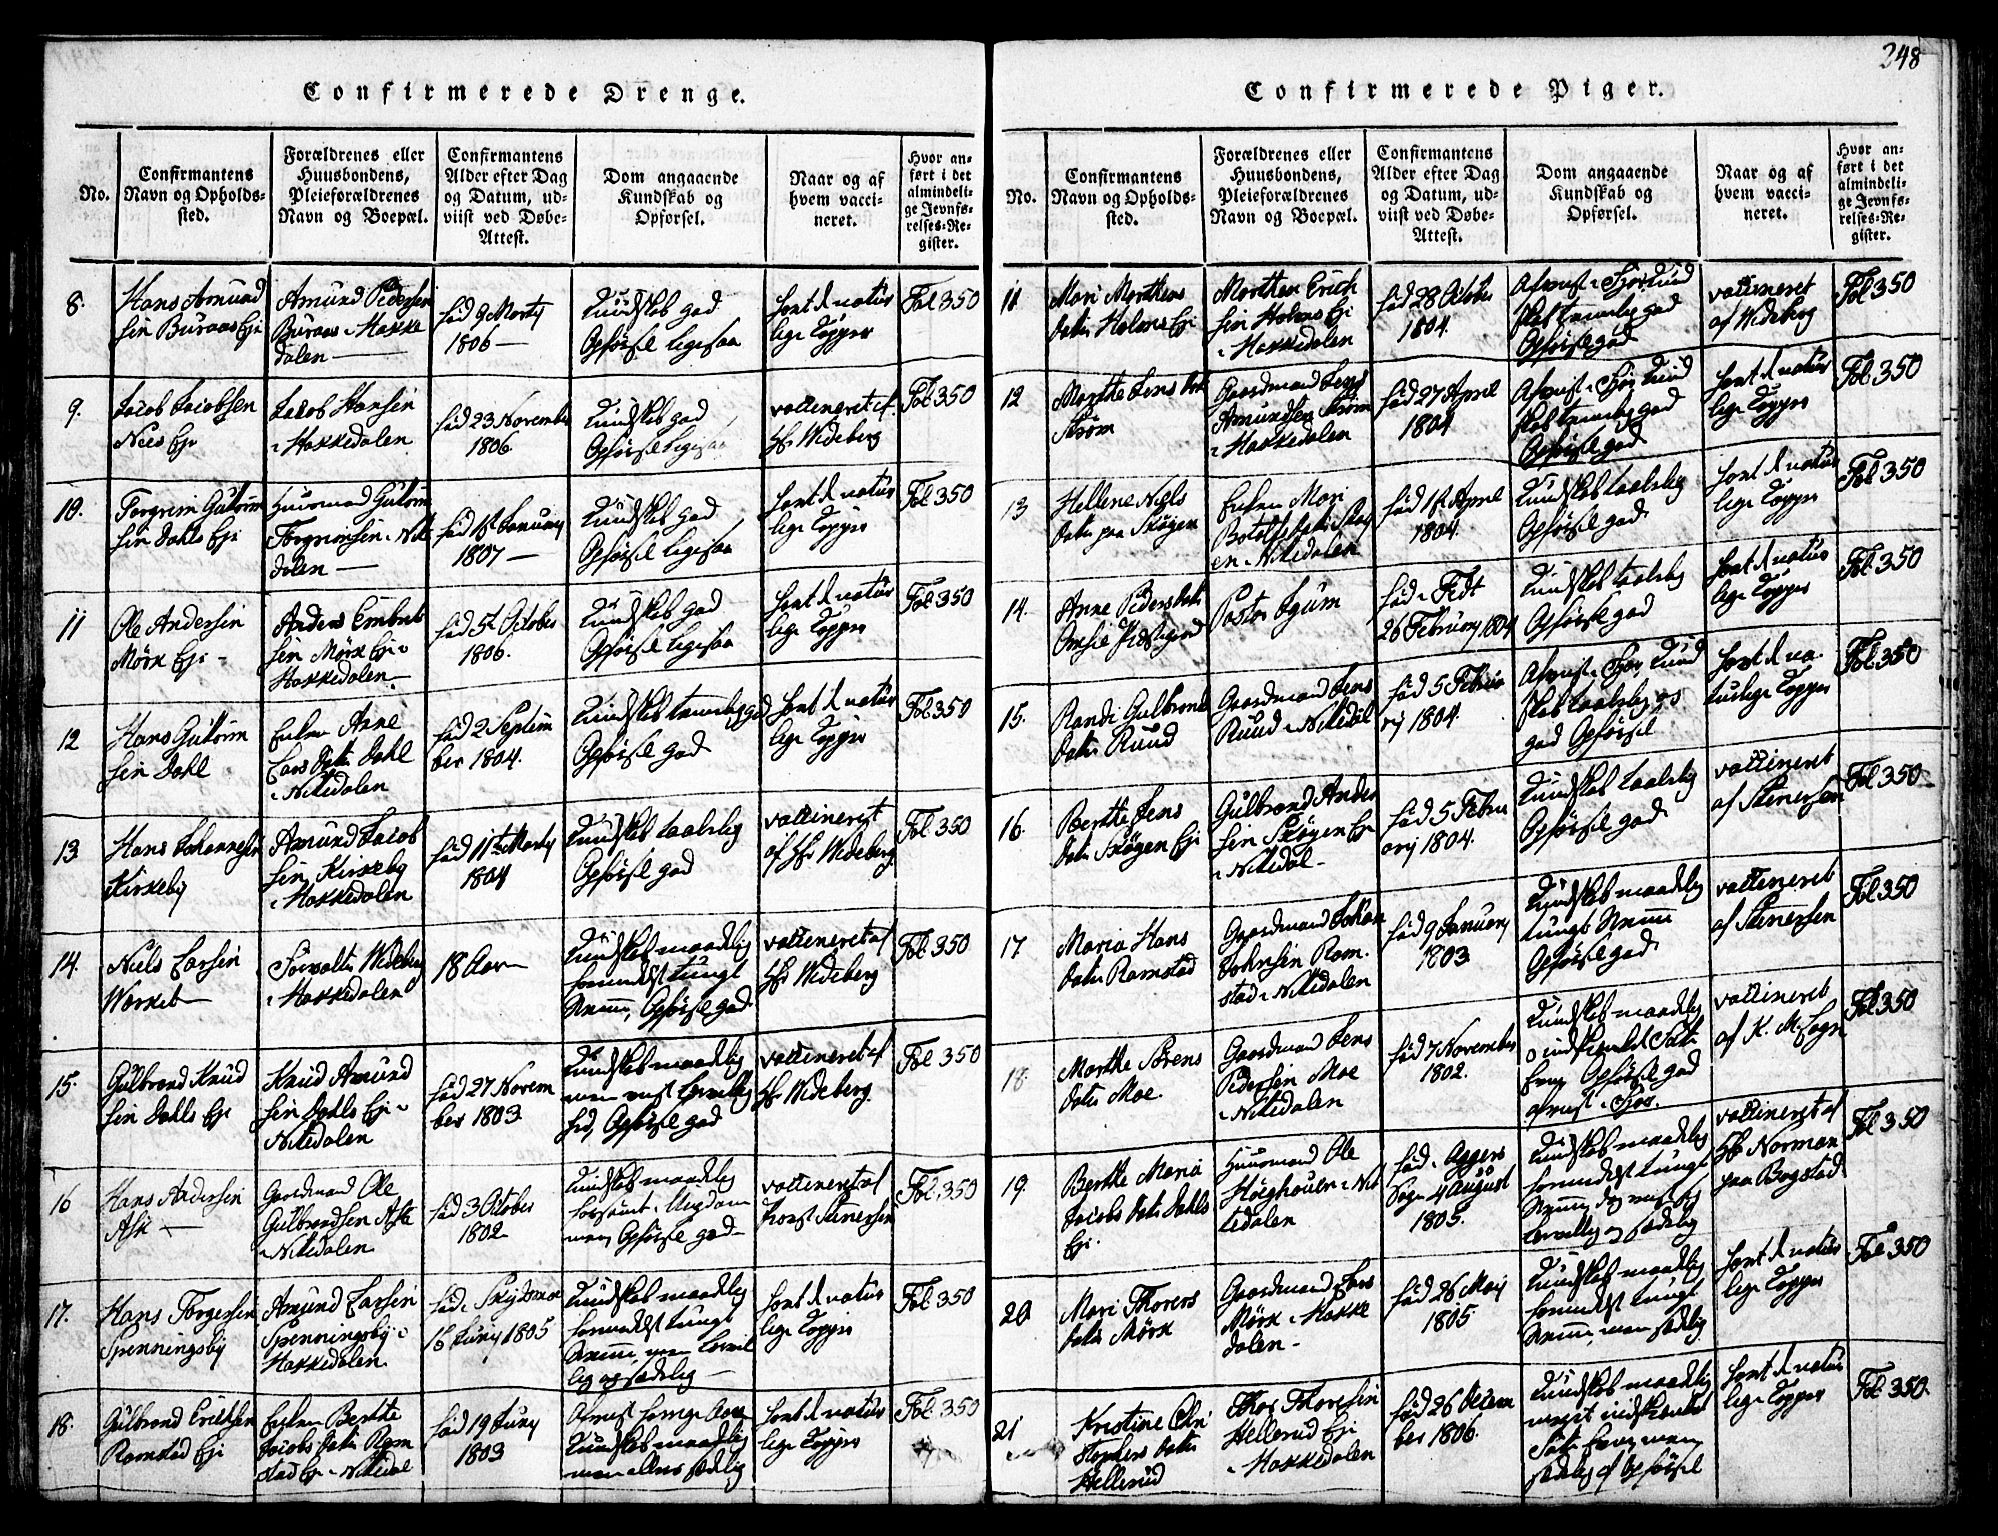 248
Confirmerede Drenge.
No.
Confirmantens
Navn og Opholds-
sted.
Forældrenes eller
Huusbondens,
Pleieforældrenes
Navn og Boepæl.
Confirmantens
Alder efter Dag
og Datum, ud-
viist ved Døbe-
Attest.
Dom angaaende
Kundskab og
Opførsel.
Naar og af
hvem vacci-
neret.
Hvor an-
ført i det
almindeli-
ge Jevnfø-
relses-Re-
gister.
8.
Hans Amund
sen Buraas Eje
Amund Pedersen
Buraas i Hakke
dalen
fød 9 Marty
1806
Kundskab god
Opførsel ligesaa
havt d natur
lige Kopper
Fol 350
9.
Jacob Jacobsen
Nies Eje
Jacob Hansen
i Hakkedalen
fød 23 November
1806.
Kundskab god
Opførsel ligesaa
vaccineret af
Hr Wideberg
Fol 350
10.
Torgrim Guttorm
sen Dahls Eje
Huusmand Guttorm
Torgrimsen i Nitt
dalen
fød 1st January
1807
Kundskab god
Opførsel ligesaa
havt d natur
lige Kopper
Fol 350
11
Ole Andersen
Mørk Eje
Anders Embret
sen Mørk Eje i
Hakkedalen
fød 5t October
1806.
Kundskab god
Opførsel ligesaa
havt d natur
lige Kopper
Fol 350
12
Hans Guttorm
sen Dahl
Enken Anne
Lars Datter Dahl
i Nitedalen
fød 2 Septem
ber 1804.
Kundskab temmelig god
Opførsel god
havt d natur
lige Kopper
Fol 350
13
Hans Johannesen
Kirkeby
Amund Jacob
sen Kirkeby
i Hakkedalen
fød 11te Marty
1804
Kundskab taalelig
Opførsel god
vaccineret
af Hr Wideberg
Fol 350
14.
Niels Larsen
Værket
Forvalter Wideberg
i Hakkedalen
18 Aar
Kundskab maadelig
formedelst tungt
Nemme, Opførsel god
vaccineret af
Hr Wideberg
Fol 350
15.
Gulbrand Knud
sen Dahls Eje
Knud Amund
sen Dahls Eje i
Nitedalen
fød 27 Novem
ber 1803
Kundskab maadelig
Opførsel god
vaccineret af
Hr Wideberg
Fol 350
16
Hans Andersen
Ask
Gaardmand Ole
Gulbrandsen Ask
i Nitedalen
fød 3 October
1802
Kundskab maadelig
forsømt i Ungdom
men, Opførsel god
vaccineret af
Provst Steenersen
Fol. 350
17.
Hans Torgersen
Spenningsby
Amund Larsen
Spenningsby i
Hakkedalen
fød i Skydsmoe
16 Juny 1805
Kundskab maadelig
formedelst tungt
Nemme, men lærvil
lig og sædelig
havt d natur
lige Kopper
Fol 350
18.
Gulbrand Ericksen
Ramstad Eje
Enken Berthe
Jacobs Datter Ram
stad Eje i Nitedal
fød 19 Juny
1803
Kundskab maadelig
men ellers sædelig
havt d natur
lige Kopper
Fol 350
Confirmerede Piger.
No.
Confirmantens
Navn og Opholds-
sted.
Forældrenes eller
Huusbondens,
Pleieforældrenes
Navn og Boepæl.
Confirmantens
Alder efter Dag
og Datum, ud-
viist ved Døbe-
Attest.
Dom angaaende
Kundskab og
Opførsel.
Naar og af
hvem vacci-
neret.
Hvor an-
ført i det
almindeli-
ge Jevnfø-
relses-Re-
gister.
11
Mari Morthens
datter Holms Eje
Morthen Erich
sen Holms Eje
i Hakkedalen
fød 28 October
1804.
Afviist i Fjor, Kund
skab temmelig god
Opførsel god
vaccineret
af Wideberg
Fol 350
12
Marthe Jens Datter
Strøm
Gaardmand Jens
Amundsen Strøm
i Hakkedalen
fød 27 April
1804
Afviist i Fjor Kund
skab temmelig god
Opførsel god
havt d natur
lige Kopper
Fol. 350
13
Hellene Niels
datter paa Skøgen
Enken Mari
Botolfs datter Skøg
en i Nitedalen
fød 12 April
1804.
Kundskab taalelig
Opførsel god
havt d natur
lige Kopper
Fol 350
14.
Anne Peders datter
Pastor Lysum
fød i Fedt
26 February 1804
Kundskab taalelig
Opførsel god
havt d natur
lige Kopper
Fol. 350
15.
Randi Gulbrands
datter Ruud
Gaardmand Jens
Ruud i Nitedal
fød 5 Febru
ary 1804.
Afviist i Fjor, Kund
skab taalelig og
god Opførsel
havt d na
turlige Kopper
Fol. 350
16.
Berthe Jens
datter Skøgen Eje
Gulbrand Ander
sen Skøgen Eje
i Nitedal
fød 5 Febru
ary 1804.
Kundskab taalelig
Opførsel god
vaccineret
af Stenersen
Fol 350
17
Maria Hans
datter Ramstad
Gaardmand Johan
Johnsen Ram
stad i Nitedalen
fød 9 January
1803
Kundskab maadelig
tungt Nemme
Opførsel god
vaccineret
af Stenersen
Fol 350
18.
Marthe Sørens
datter Moe
Gaardmand Jens
Pedersen Moe
i Nitedalen
fød 7 November
1802.
Kundskab maadelig
Opførsel god
afviist i Fjor.
vaccineret
af K. M. Sogn
Fol 350
19.
Berthe Maria
Jacobs datter Dahls
Eje.
Huusmand Ole
Høeghouen i Nit
tedalen
fød i Aggers
Sogn 4 August
1805.
Kundskab maadelig
formedelst tungt
Nemme
vaccineret af
Hr Norman
paa Bogstad
Fol 350
20
Mari Thorers
datter Mørk
Gaardmand Lars
Mørk i Hakke
dalen
fød 26 May
1805
Kundskab maadelig
formedelst tungt
Nemme, men sædelig
havt d natur
lige Kopper
Fol 350
21
Kristine Chri
stophers datter
Hellerud
Thor Thoresen
Hellerud Eje
i Hakkedalen
fød 26 Decem
ber 1806.
Kundskab maadelig
meget indskrænket
sædelig af Opførsel
havt d natur
lige Kopper
Fol 350.